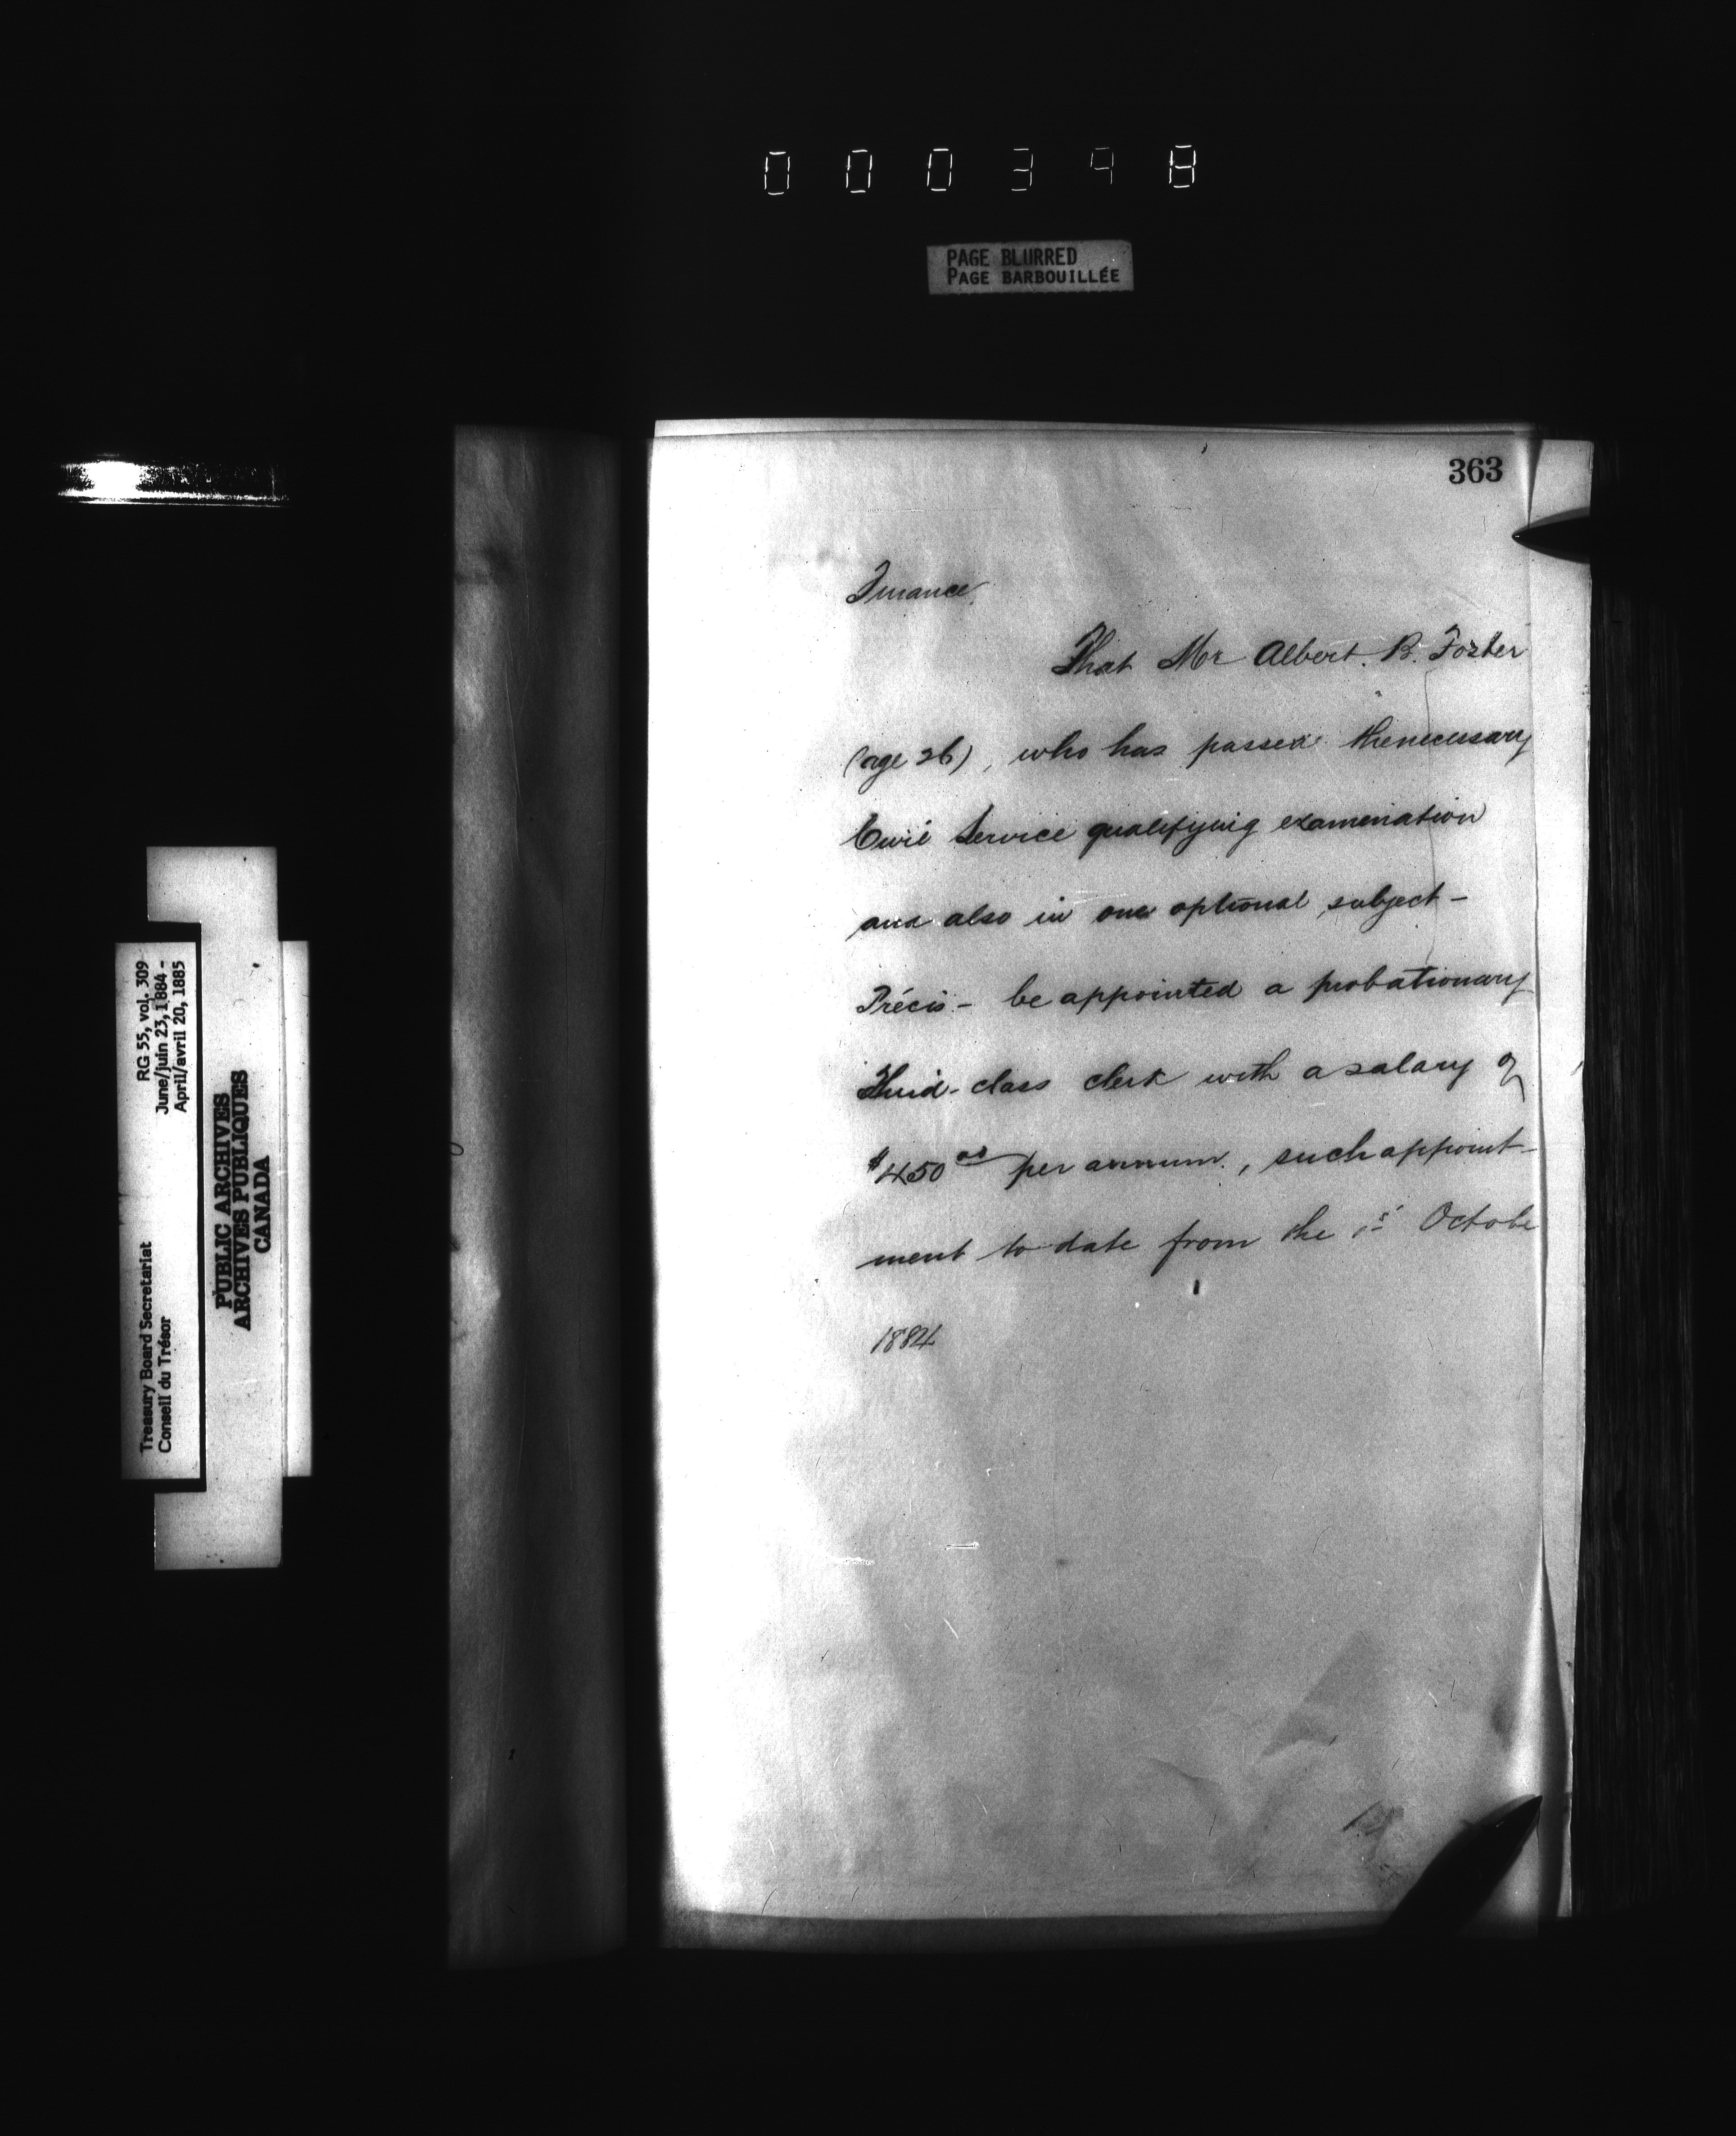 000398
PAGE BLURRED
PAGE BARBOUILLÉE
363
Finance
That Mr Albert. B. Foster
(age 26), who has passed the necessary
Civil Service qualifying examination
and also in one optional subject -
Précis - be appointed a probationary
Third-class clerk with a salary of
$450 00 per annum., such appoint-
ment to date from the 1st Octobe
1884
RG 55, vol. 309
June/juin 23, 1884 -
April/avril 20, 1885
Treasury Board Secretariat
Conseil du Trésor
PUBLIC ARCHIVES
ARCHIVES PUBLIQUES
CANADA